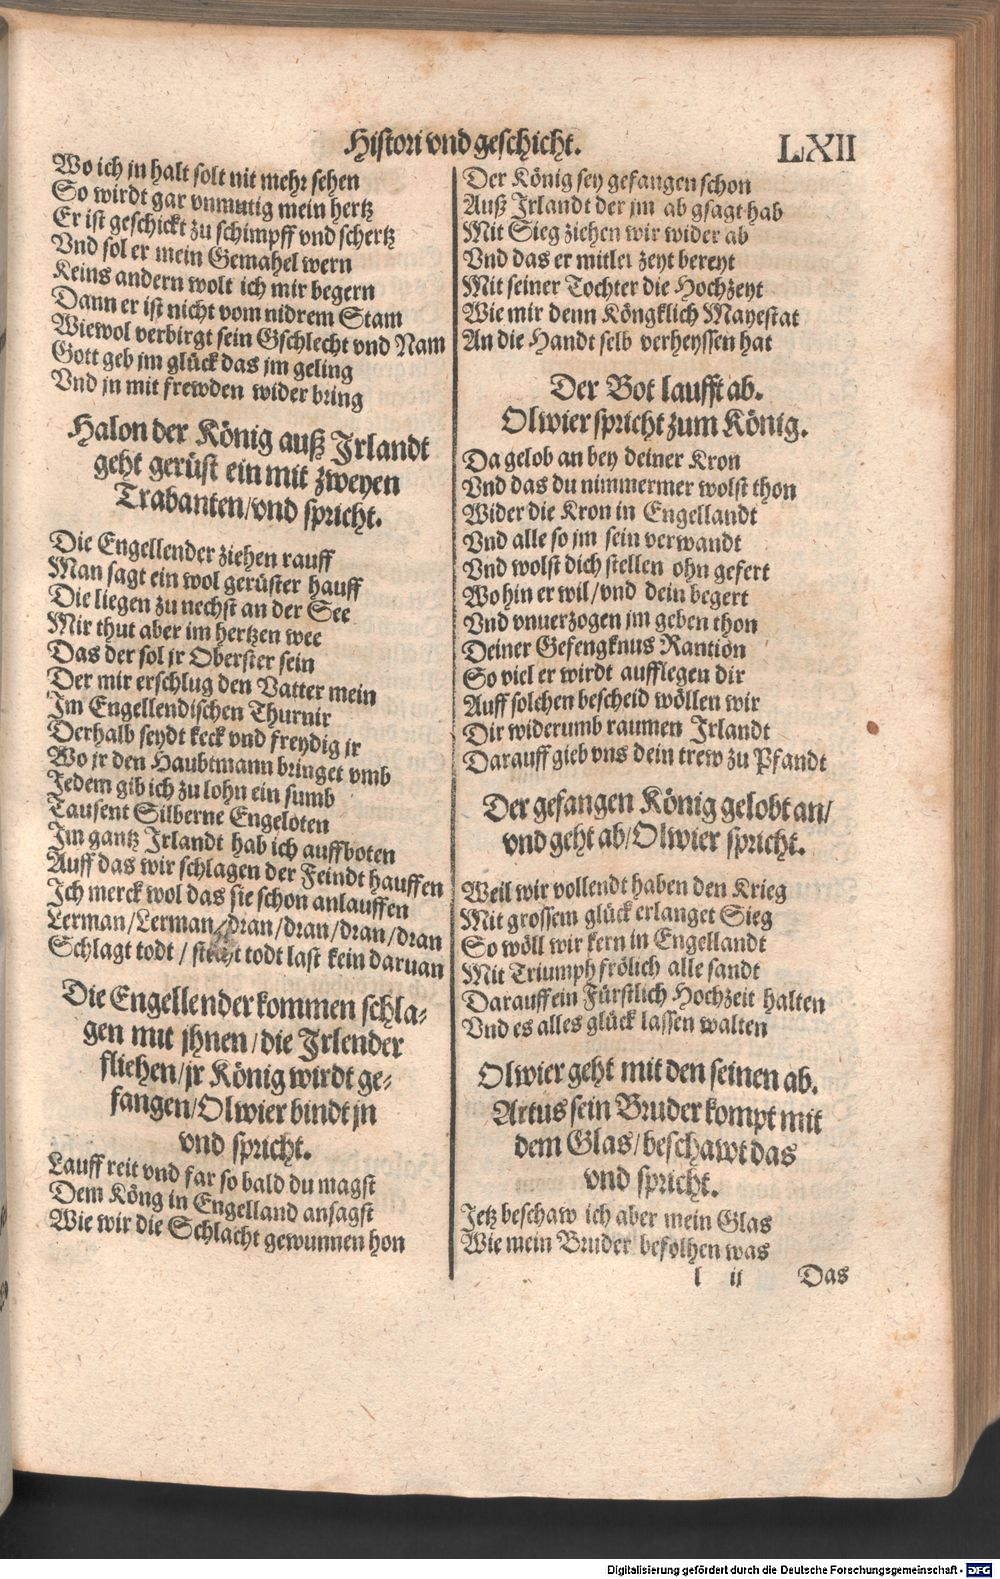 Histori vnd geschicht.
LXII
Wo ich jn halt solt nit mehr sehen
So wirdt gar vnmutig mein hertz
Er ist geschickt zu schimpff vnd schertz
Vnd sol er mein Gemahel wern
Keins andern wolt ich mir begern
Dann er ist nicht vom nidrem Stam
Wiewol verbirgt sein Gschlecht vnd Nam
Gott geb jm glück das jm geling
Vnd jn mit frewden wider bring
Halon der König auß Irlandt
geht gerüst ein mit zweyen
Trabanten/vnd spricht.
Die Engellender ziehen rauff
Man sagt ein wol gerüster hauff
Die liegen zu nechst an der See
Mir thut aber im hertzen wee
Das der sol jr Oberster sein
Der mir erschlug den Vatter mein
Im Engellendischen Thurnir
Derhalb seydt keck vnd freydig jr
Wo jr den Haubtmann bringet vmb
Jedem gib ich zu lohn ein sumb
Tausent Silberne Engeloten
Im gantz Irlandt hab ich auffboten
Auff das wir schlagen der Feindt hauffen
Ich merck wol das sie schon anlauffen
Lerman/Lerman/dran/dran/dran/dran
Schlagt todt / stecht todt last kein daruan
Die Engellender kommen schla=
gen mit jhnen/die Irlender
fliehen/jr König wirdt ge=
fangen/Olwier bindt jn
vnd spricht.
Lauff reit vnd far so bald du magst
Dem Köng in Engelland ansagst
Wie wir die Schlacht gewunnen hon
Der König sey gefangen schon
Auß Irlandt der jm ab gsagt hab
Mit Sieg ziehen wir wider ab
Vnd das er mitler zeyt bereyt
Mit seiner Tochter die Hochzeyt
Wie mir denn Köngklich Mayestat
An die Handt selb verheyssen hat
Der Bot laufft ab.
Olwier spricht zum König.
Da gelob an bey deiner Kron
Vnd das du nimmermer wolst thon
Wider die Kron in Engellandt
Vnd alle so jm sein verwandt
Vnd wolst dich stellen ohn gefert
Wo hin er wil/vnd dein begert
Vnd vnuerzogen jm geben thon
Deiner Gefengknus Rantion
So viel er wirdt aufflegen dir
Auff solchen bescheid wöllen wir
Dir widerumb raumen Irlandt
Darauff gieb vns dein trew zu Pfandt
Der gefangen König gelobt an/
vnd geht ab/Olwier spricht.
Weil wir vollendt haben den Krieg
Mit grossem glück erlanget Sieg
So wöll wir kern in Engellandt
Mit Triumph frölich alle sandt
Darauff ein Fürstlich Hochzeit halten
Vnd es alles glück lassen walten
Olwier geht mit den seinen ab.
Artus sein Bruder kompt mit
dem Glas/beschawt das
vnd spricht.
Jetz beschaw ich aber mein Glas
Wie mein Bruder befolhen was
l ij Das
Digitalisierung gefördert durch die Deutsche Forschungsgemeinschaft - DFG